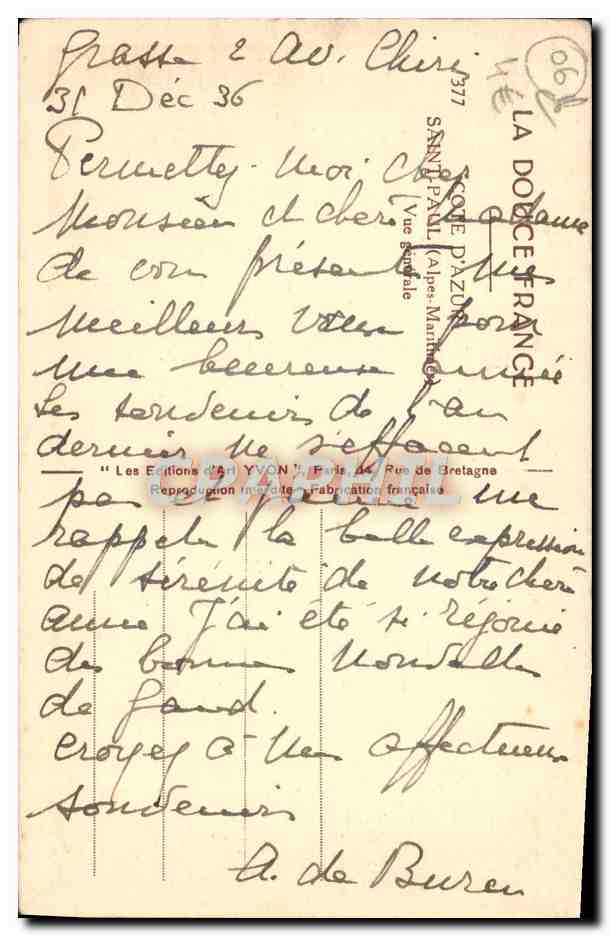 Grasse 2 Av. Chiris
31 Déc 36
Permettez-moi, cher
Monsieur et chère Madame
de vous présenter mes
meilleurs vœux pour
une heureuse année
Les souvenirs de l'an
dernier ne s'effacent
pas et me
rappelle la belle expression
de sérénité de notre chère
amie J'ai été si réjouie
des bonnes nouvelles
de Gand.
croyez à mes affectueux
souvenirs
A. de Buren
06
4€
LA DOUCE FRANCE
CÔTE D'AZUR
377 SAINT-PAUL (Alpes-Maritimes)
Vue générale
" Les Editions d'Art YVON ", Paris, 14, Rue de Bretagne
Reproduction interdite - Fabrication française
CPAPHIL